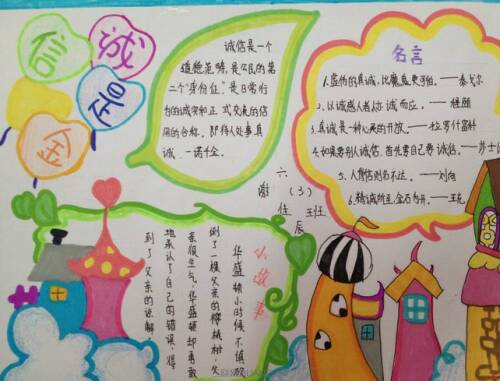 诚
信
是
金
诚信是一个
道德范畴,是公民的第
二个“身份证”,是日常行
为的诚实和正式交流的信
用的合称。即待人处事真
诚、一诺千金。
名言
1.虚伪的真诚,比魔鬼更可怕。——泰戈尔
2.以诚感人者,人亦诚而应。——程颐
3.真诚是一种心灵的开放。——拉罗什富科
4.如果要别人诚信,首先要自己要诚信。——莎士比
5.人背信则名不达。——刘向
6.精诚所至,金石为开。——王充
六(3)班
谢佳辰
小故事
华盛顿小时候不慎砍
倒了一棵父亲的樱桃树,父
亲很生气,华盛顿却勇敢
地承认了自己的错误,得
到了父亲的谅解。